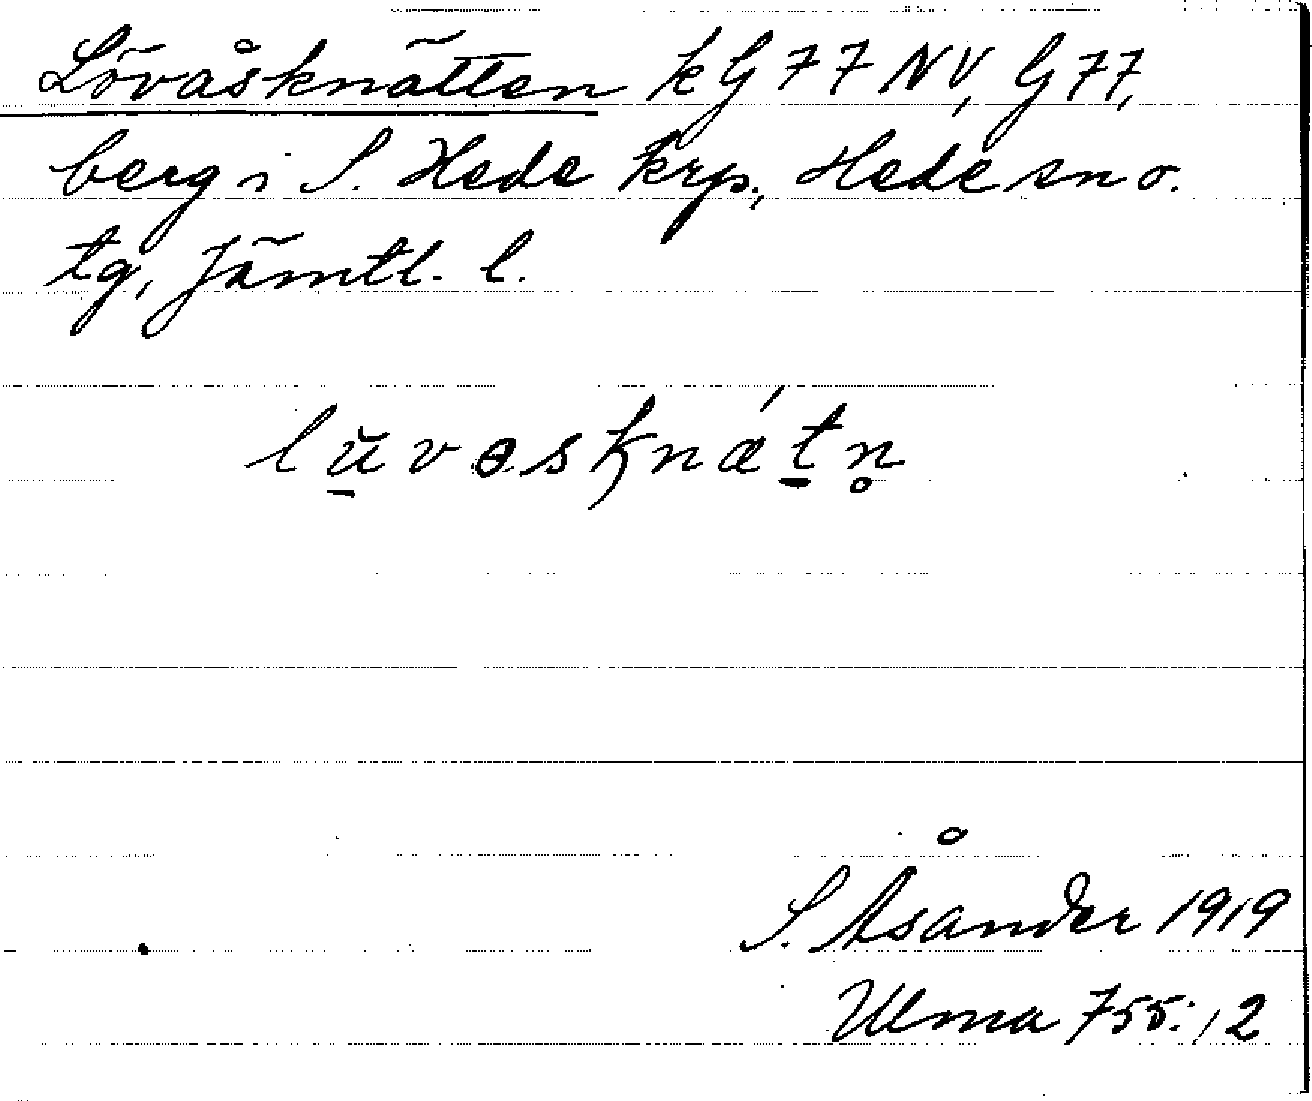 Lövåsknätten kG77NV, G77,
berg i S. Hede krp., Hede sn o.
tg, Jämtl. l.
lŭ̠vɵsknǽt̠n̥
S. Åsander 1919
Ulma 755:12